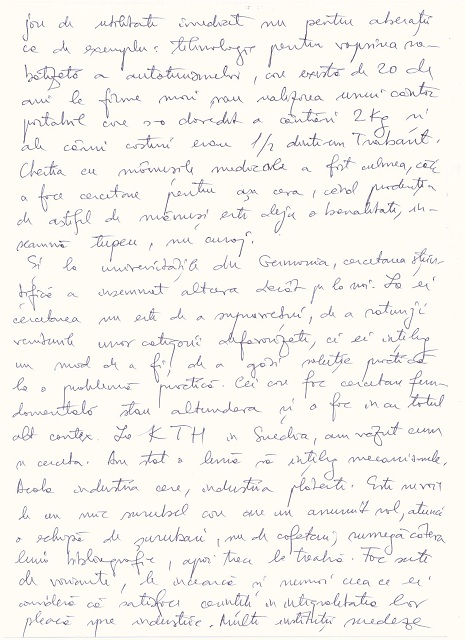 jou de utilitate imediată nu pentru aberații
ca de exemplu: tehnologii pentru vopsirea ro-
botizată a autoturismelor, care există de 20 de
ani la firme mari sau realizarea unui cântar
portabil care s-a dovedit a cântări 2 Kg și
ale cărui costuri erau 1/2 dintr-un Trabant.
Chestia cu mănușile medicale a fost culmea, căci
a face cercetare pentru așa ceva, când producția
de astfel de mănuși este deja o banalitate, în-
seamnă tupeu, nu curaj.
Și la universitățile din Germania, cercetarea știin-
țifică a însemnat altceva decât pe la noi. La ei
cercetarea nu este de a supraviețui, de a rotunji
veniturile unor categorii defavorizate, ci ei înțeleg
un mod de a fi, de a găsi soluție practică
la o problemă practică. Cei care fac cercetare fun-
damentală stau altundeva și o fac în cu totul
alt context. La KTH în Suedia, am văzut cum
se cerceta. Am stat o lună să înțeleg mecanismele.
Acolo industria cere, industria plătește. Este nevoie
de un mic șurubel care are un anumit rol, atunci
o echipă de șurubari, nu de cofetari, rumegă câteva
luni bibliografie, apoi trec la treabă. Fac sute
de variante, le încearcă și numai ceea ce ei
consideră că satisface cerințele în integralitatea lor
pleacă spre industrie. Multe institute suedeze